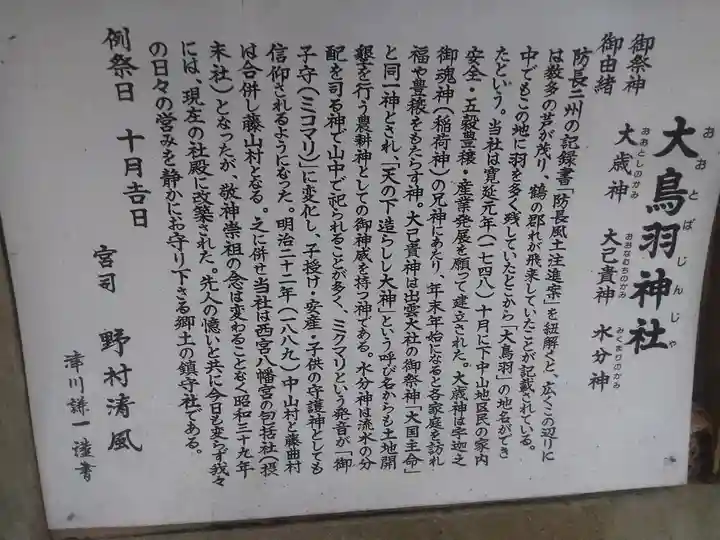 大鳥羽神社
おおとばじんじゃ
御祭神
大歳神 大己貴神 水分神
おおとしのかみ おおなむちのかみ みくまりのかみ
御由緒
防長二州の記録書「防長風土注進案」を紐解くと、広くこの辺りに
は数多の芦が茂り、鶴の群れが飛来していたことが記載されている。
中でもこの地に羽を多く残していたとこから「大鳥羽」の地名ができ
たという。当社は寛延元年(一七四八)十月に下中山地区民の家内
安全・五穀豊穣・産業発展を願って建立された。大歳神は宇迦之
御魂神(稲荷神)の兄神にあたり、年末年始になると各家庭を訪れ
福や豊穣をもたらす神。大己貴神は出雲大社の御祭神「大国主命」
と同一神とされ、「天の下造らしし大神」という呼び名からも土地開
墾を行う農耕神としての御神威を持つ神である。水分神は流水の分
配を司る神で山中で祀られることが多く、ミクマリという発音が「御
子守(ミコマリ)」に変化し、子授け・安産・子供の守護神としても
信仰されるようになった。明治二十二年(一八八九)中山村と藤曲村
は合併し藤山村となる。之に併せ当社は西宮八幡宮の包括社(摂
末社)となったが、敬神崇祖の念は変わることなく昭和三十九年
には、現在の社殿に改築された。先人の憶いと共に今日も変らず我々
の日々の営みを静かにお守り下さる郷土の鎮守社である。
例祭日 十月吉日
宮司 野村清風
津川謙一 謹書